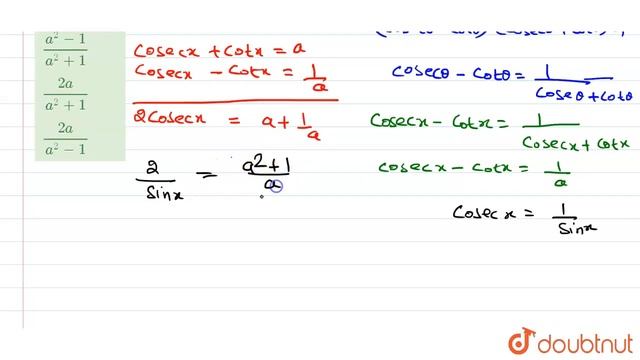 a² − 1
a² + 1
2a
a² + 1
2a
a² − 1
Cosecx + Cotx = a
Cosecx − Cotx = 1/a
2Cosecx = a + 1/a
2/Sinx = a²+1/a
Cosecθ − Cotθ = 1/Cosecθ + Cotθ
Cosecx − Cotx = 1/Cosecx + Cotx
Cosecx − Cotx = 1/a
Cosecx = 1/Sinx
doubtnut